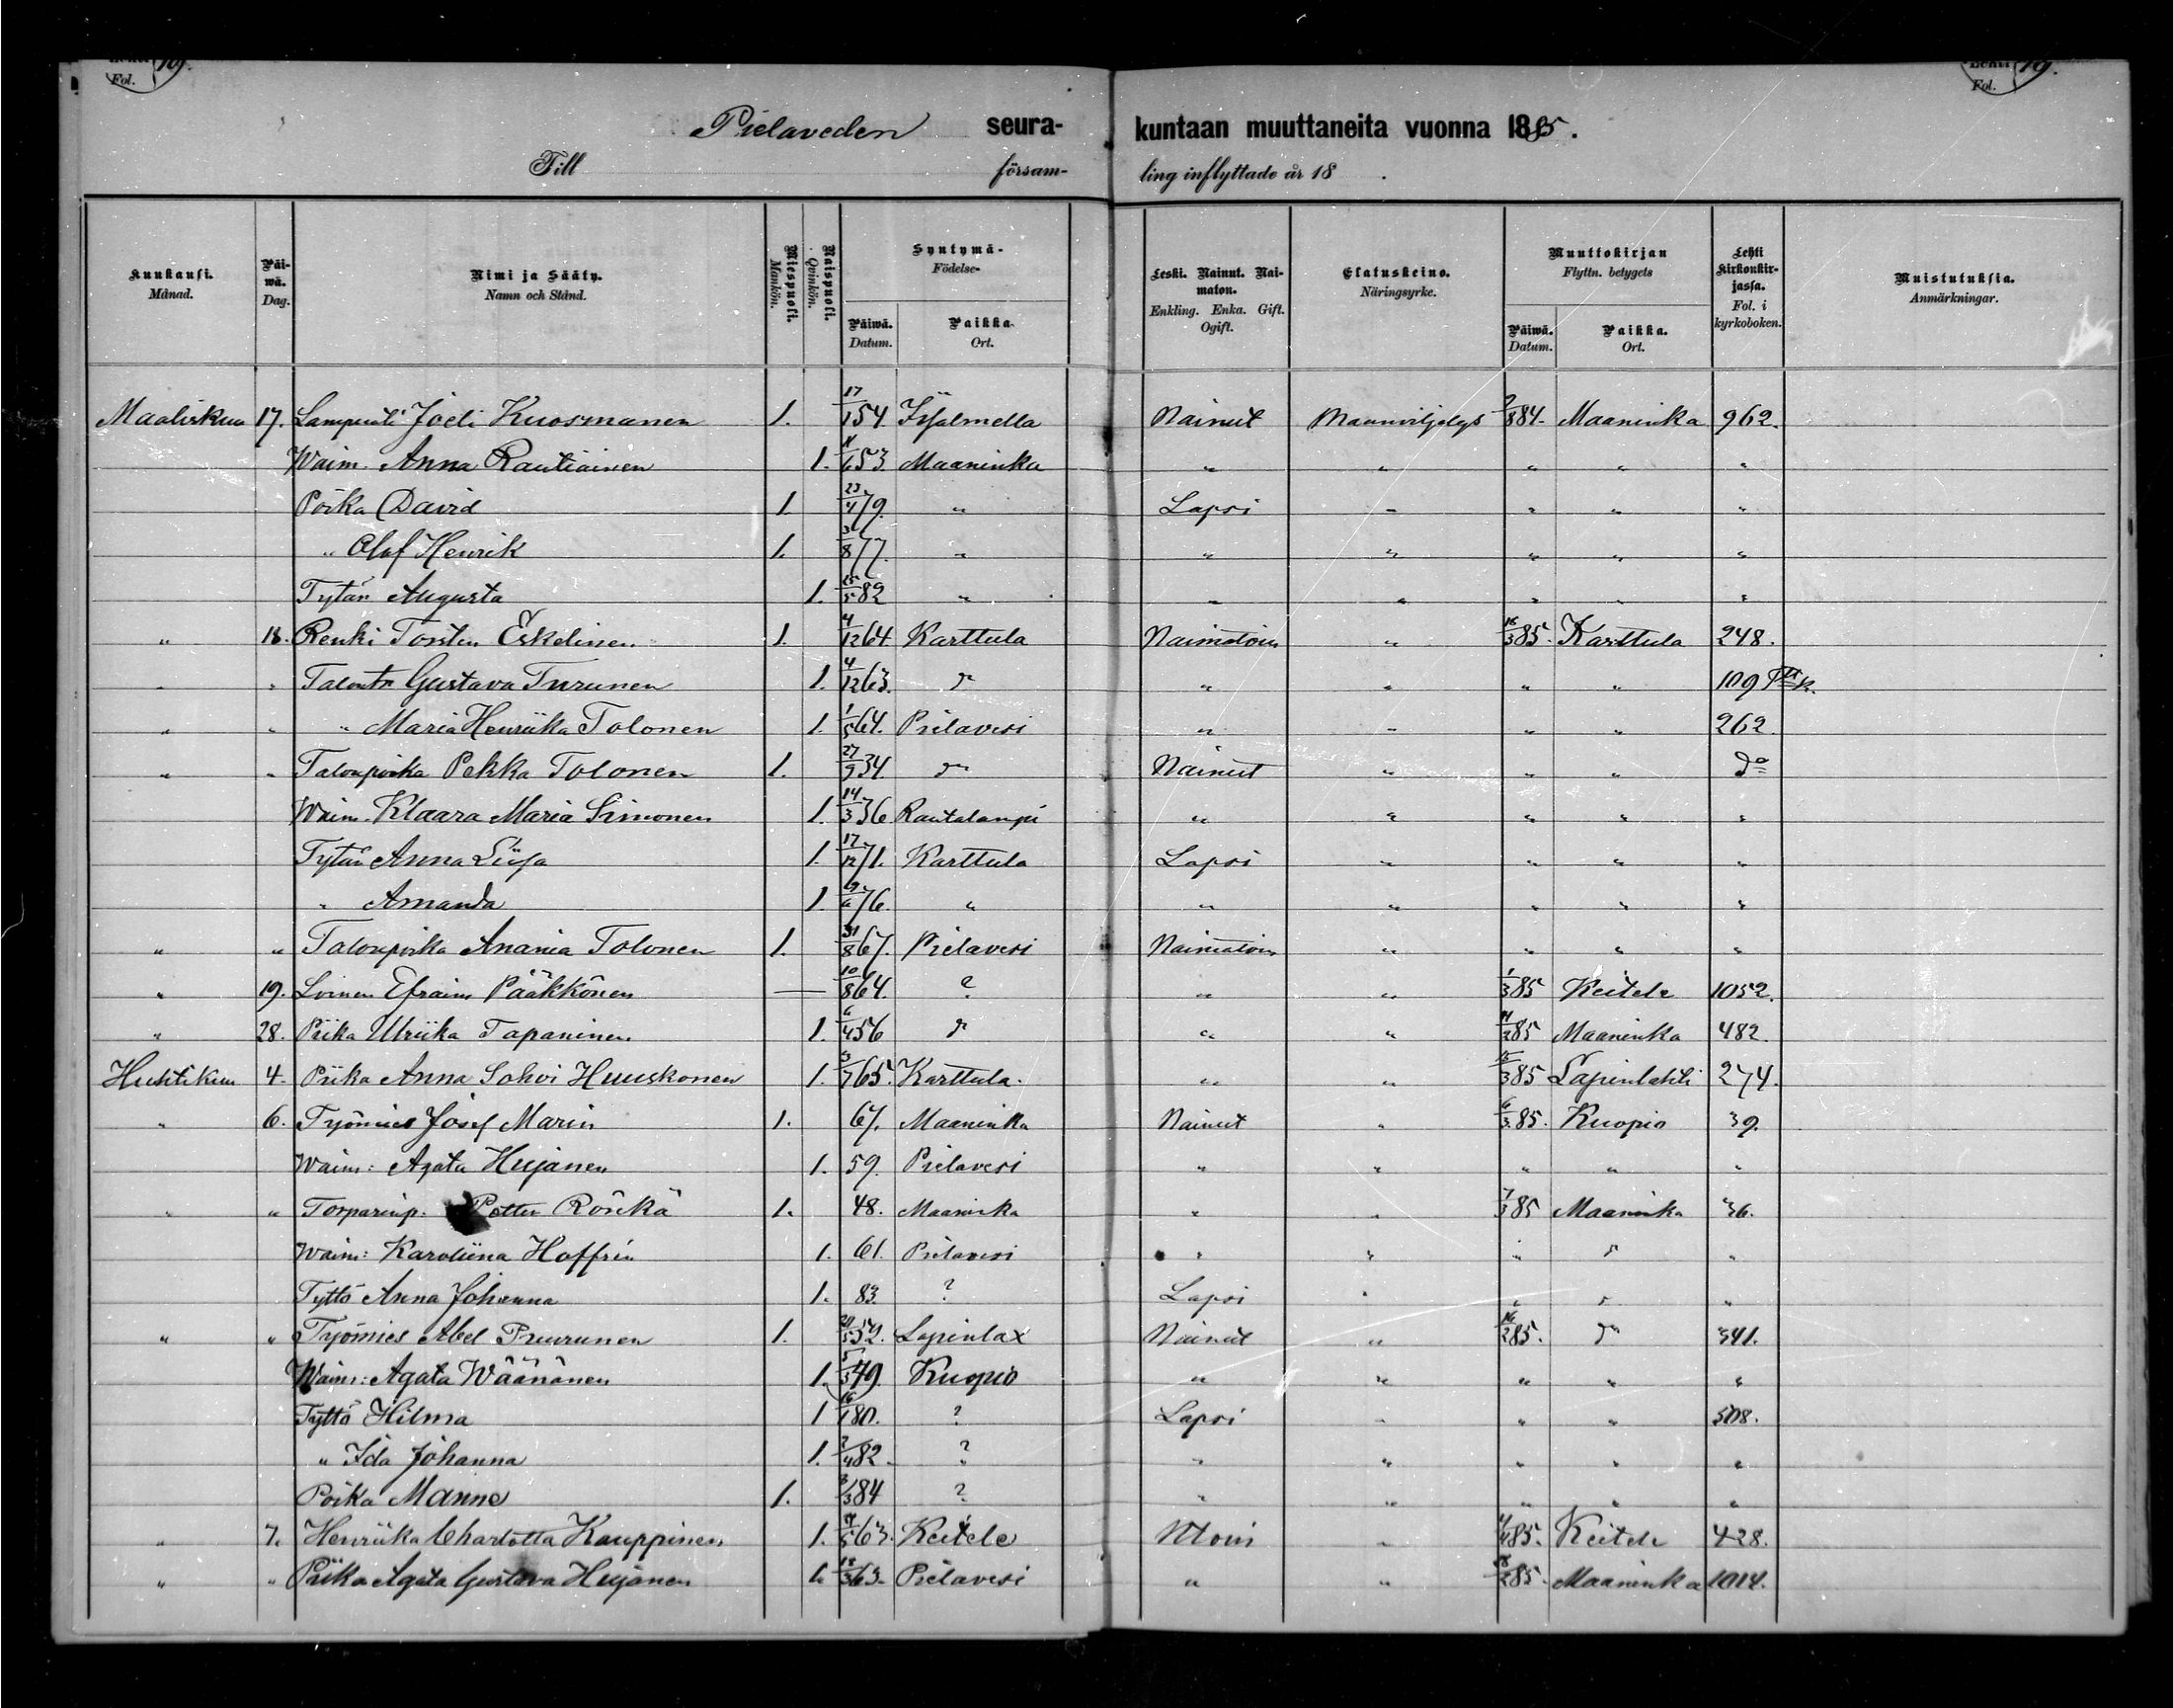 Fol. 19.
Lehti 19.
Fol.
Pielaveden seura- kuntaan muuttaneita vuonna 1885.
Till försam- ling inflyttade år 18 .
Kuukausi. Månad. Päi- wä. Dag. Nimi ja Sääty. Namn och Stånd. Miespuoli. Mankön. Naispuoli. Qvinkön. Syntymä- Födelse- Päiwä. Datum. Paikka. Ort. Leski. Nainut. Nai- maton. Enkling. Enka. Gift. Ogift. Elatuskeino. Näringsyrke. Muuttokirjan Flyttn. betygets Päiwä. Datum. Paikka. Ort. Lehti Kirkonkir- jassa. Fol. i kyrkoboken. Muistutuksia. Anmärkningar.
Maaliskuu 17. Lampuoti Joeli Kuosmanen 1. 17/1 54. Iisalmella Nainut Maanviljelys 2/8 84. Maaninka 962.
Waim. Anna Rautiainen 1. 11/6 53. Maaninka " " " " "
Poika David 1. 23/4 79. " Lapsi " " " "
" Olaf Henrik 1. 8 77. " " " " " "
Tytär Augusta 1. 25/5 82 " " " " " "
" 18. Renki Torsten Eskelinen 1. 4/12 64. Karttula Naimatoin " 16/3 85. Karttula 248.
" " Talontr Gustava Turunen 1. 4/12 63. do " " " " 109
" " " Maria Henriika Tolonen 1. 1/5 64. Pielavesi " " " " 262.
" " Talonpoika Pekka Tolonen 1. 27/9 34. do Nainut " " " do
Waim. Klaara Maria Simonen 1. 14/3 36 Rautalampi " " " " "
Tytär Anna Liisa 1. 17/12 71. Karttula Lapsi " " " "
" Amanda 1. 19/6 76. " " " " " "
" " Talonpoika Anania Tolonen 1. 31/8 67. Pielavesi Naimatoin " " " "
" 19. Loinen Efraim Pääkkönen — 10/8 64. ? " " 1/3 85 Keitele 1052.
" 28. Piika Ulriika Tapaninen 1. 6/4 56 do " " 11/2 85 Maaninka 482.
Huhtikuu 4. Piika Anna Sohvi Huuskonen 1. 3/7 65. Karttula. " " 15/3 85 Lapinlahti 274.
" 6. Työmies Josef Marin 1. 67. Maaninka Nainut " 6/3 85. Kuopio 39.
Waim: Agata Hujanen 1. 59. Pielavesi " " " " "
" " Torparinp. Petter Röukä 1. 48. Maaninka " " 7/3 85 Maaninka 36.
Waim: Karoliina Hoffrén 1. 61. Pielavesi " " " " "
Tyttö Anna Johanna 1. 83. ? Lapsi " " " "
" " Työmies Abel Puurunen 1. 20/5 52. Lapinlax Nainut " 16/2 85. do 341.
Waim: Agata Wäänänen 1. 5/3 49. Kuopio " " " " "
Tyttö Hilma 1 16/1 80. ? Lapsi " " " 508.
" Ida Johanna 1. 2/4 82. ? " " " " "
Poika Manne 1. 3/3 84 ? " " " " "
" 7. Henriika Charlotta Kauppinen 1. 21/5 63. Keitele Ntoin " 4/4 85. Keitele 428.
" " Piika Agata Gustava Hujanen 1. 13/3 63. Pielavesi " " 28/2 85. Maaninka 1014.